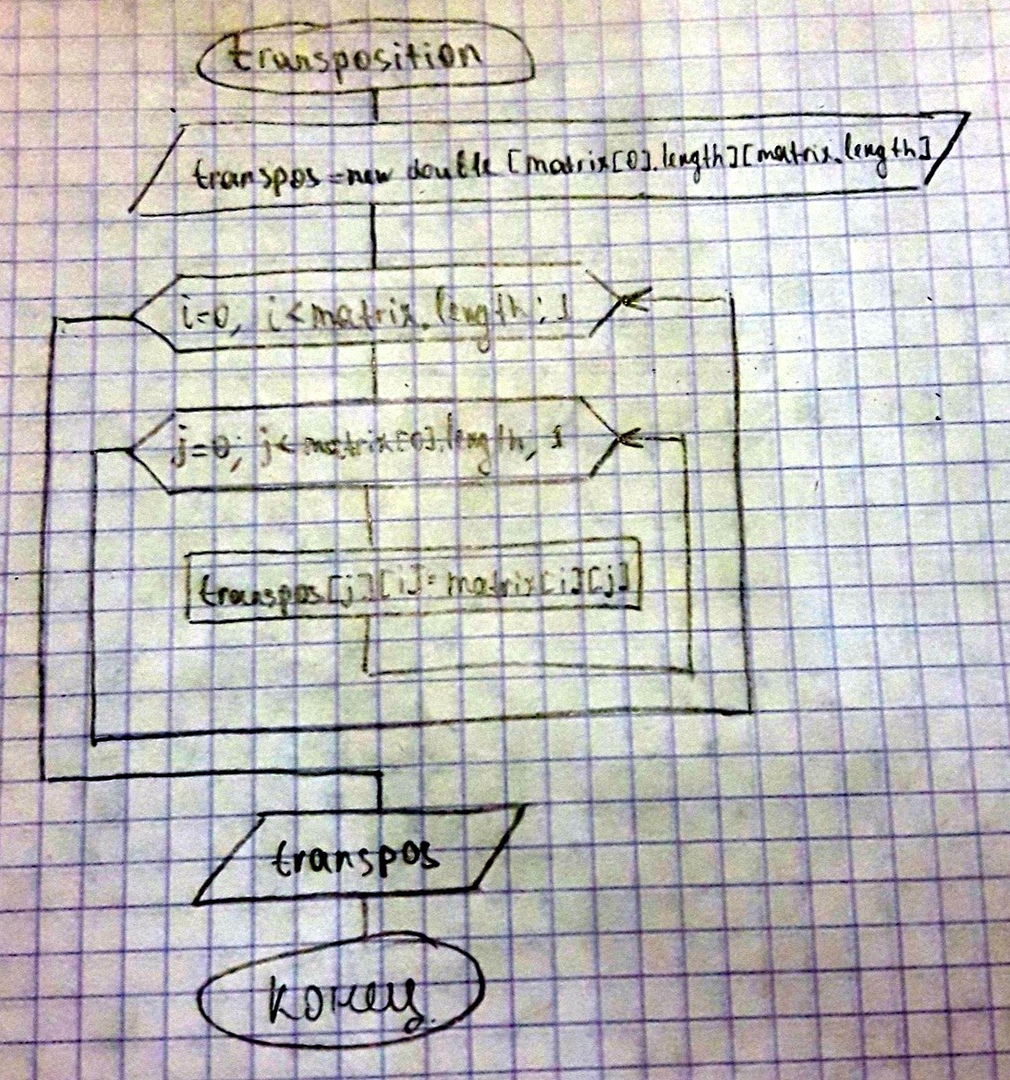 transposition
transpos=new double [matrix[0].length][matrix.length]
i=0, i<matrix.length; 1
j=0; j<matrix[0].length, 1
transpos[j][i]=matrix[i][j]
transpos
конец